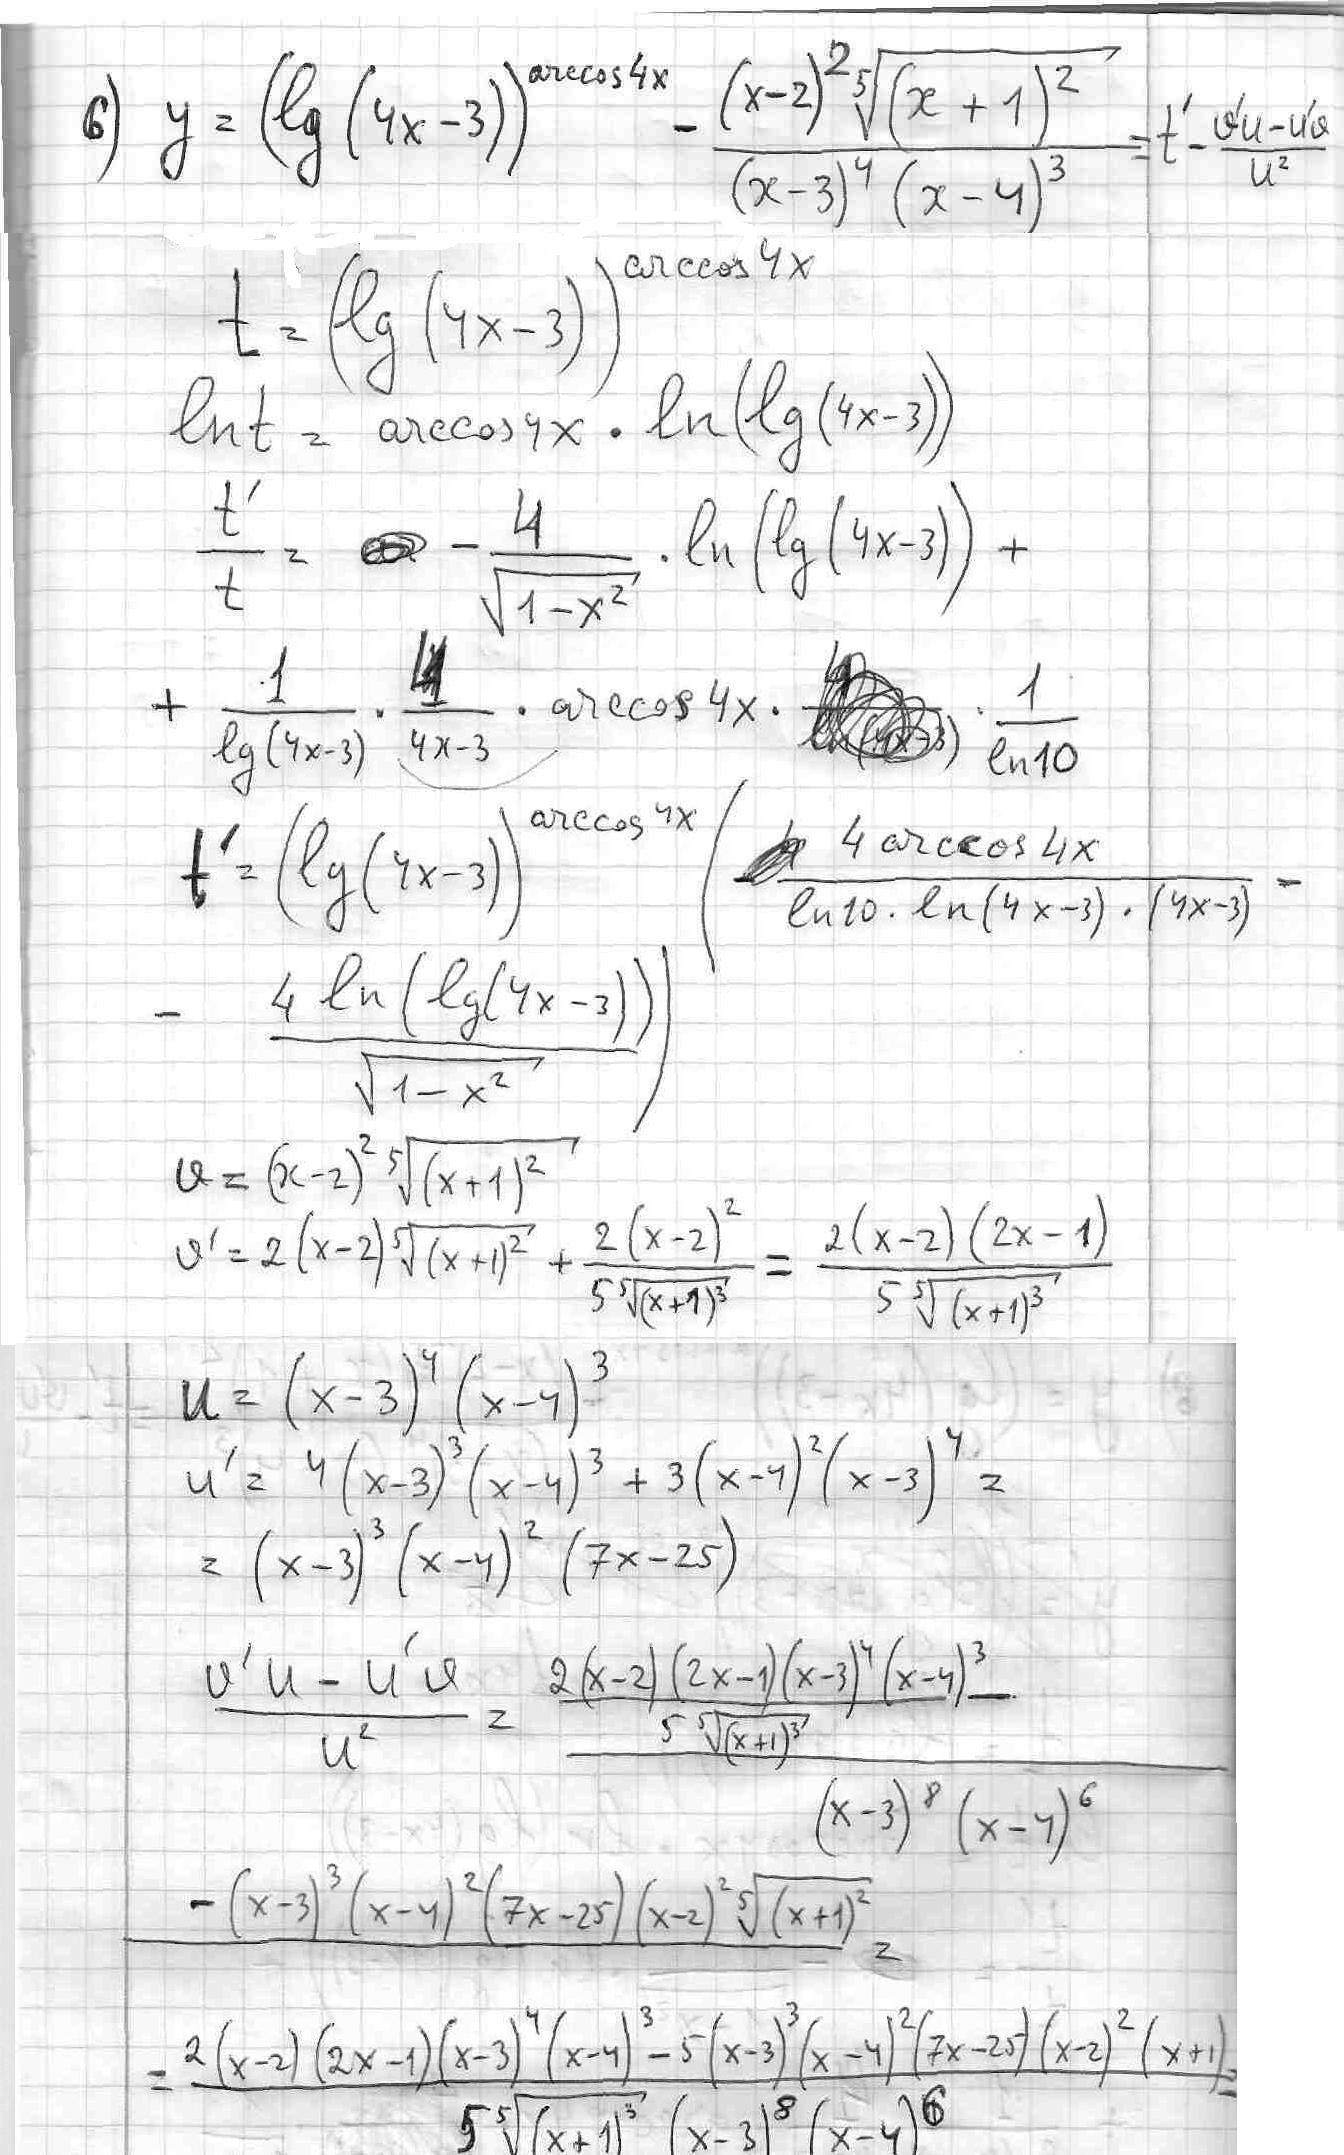 6) y = (lg(4x-3))^arccos4x - ((x-2)^2 ⁵√(x+1)^2)/((x-3)^4 (x-4)^3) = t' - (v'u-u'v)/u^2
t = (lg(4x-3))^arccos4x
ln t = arccos4x · ln(lg(4x-3))
t'/t = - 4/√(1-x^2) · ln(lg(4x-3)) +
+ 1/lg(4x-3) · 4/(4x-3) · arccos4x · · 1/ln10
t' = (lg(4x-3))^arccos4x ( (4 arccos4x)/(ln10 · ln(4x-3) · (4x-3)) -
- (4 ln(lg(4x-3)))/√(1-x^2) )
v = (x-2)^2 ⁵√(x+1)^2
v' = 2(x-2) ⁵√(x+1)^2 + (2(x-2)^2)/(5 ⁵√(x+1)^3) = (2(x-2)(2x-1))/(5 ⁵√(x+1)^3)
u = (x-3)^4 (x-4)^3
u' = 4(x-3)^3 (x-4)^3 + 3(x-4)^2 (x-3)^4 =
= (x-3)^3 (x-4)^2 (7x-25)
(v'u - u'v)/u^2 = ((2(x-2)(2x-1)(x-3)^4 (x-4)^3)/(5 ⁵√(x+1)^3) - /((x-3)^8 (x-4)^6)
- (x-3)^3 (x-4)^2 (7x-25)(x-2)^2 ⁵√(x+1)^2 =
= (2(x-2)(2x-1)(x-3)^4 (x-4)^3 - 5(x-3)^3 (x-4)^2 (7x-25)(x-2)^2 (x+1))/(5 ⁵√(x+1)^3 (x-3)^8 (x-4)^6) =